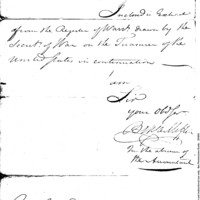 Inclosed is Extract
from the Register of Warrts drawn by the
Secrety of War on the Treasurer of the
United States in continuation
I am
Sir
your Obd Ser
In the absence of
the Accountant